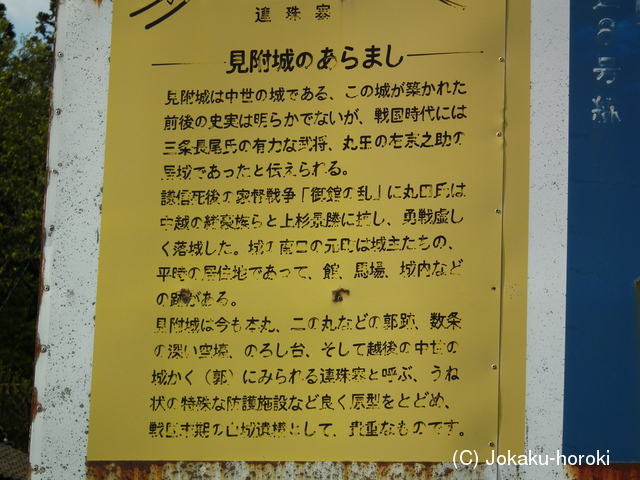 連珠寨
見附城のあらまし
見附城は中世の城である、この城が築かれた
前後の史実は明らかでないが、戦国時代には
三条長尾氏の有力な武将、丸田の左京之助の
居城であったと伝えられる。
謙信死後の家督戦争「御館の乱」に丸田氏は
中越の諸豪族らと上杉景勝に抗し、勇戦虚し
く落城した。城の南口の元町は城主たちの、
平時の居住地であって、館、馬場、城内など
の跡がある。
見附城は今も本丸、二の丸などの郭跡、数条
の深い空壕、のろし台、そして越後の中世の
城かく（郭）にみられる連珠寨と呼ぶ、うね
状の特殊な防護施設など良く原型をとどめ、
戦国末期の山城遺構として、貴重なものです。
号
(C) Jokaku-horoki